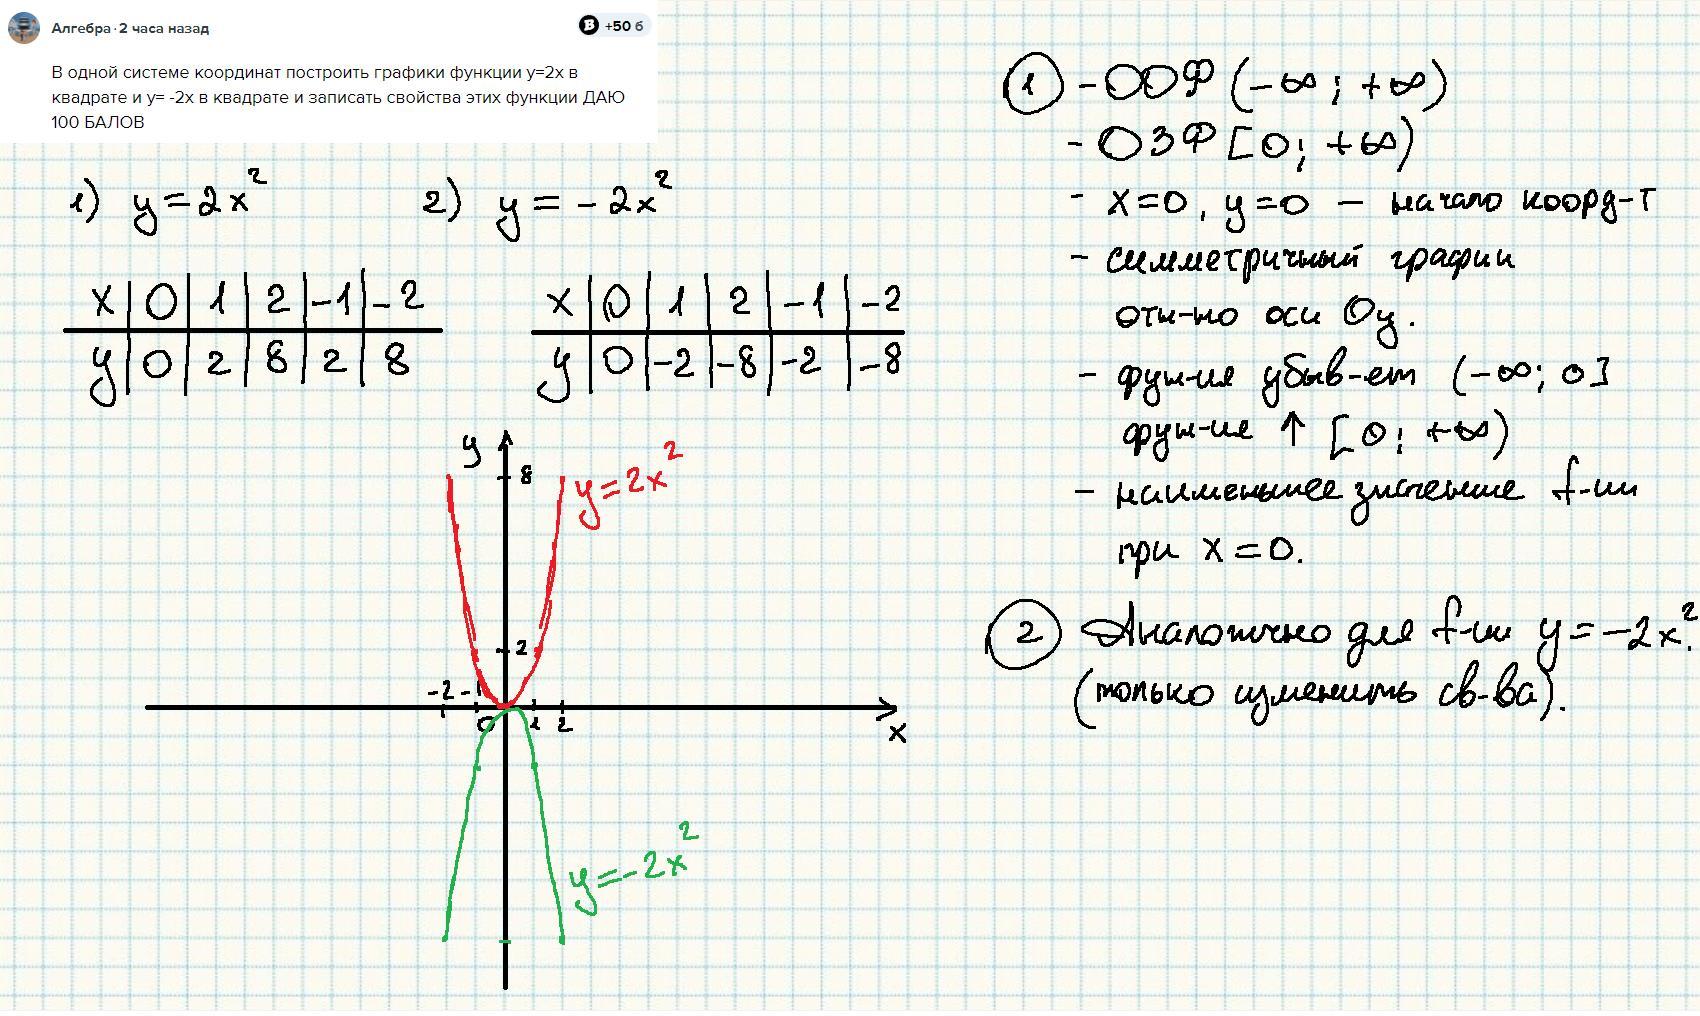 Алгебра · 2 часа назад
+50 б
В одной системе координат построить графики функции y=2x в
квадрате и y= -2x в квадрате и записать свойства этих функции ДАЮ
100 БАЛОВ
1) y = 2x² 2) y = -2x²
x 0 1 2 -1 -2
y 0 2 8 2 8
x 0 1 2 -1 -2
y 0 -2 -8 -2 -8
y
8
y=2x²
2
-2 -1
0 1 2
x
y=-2x²
1 - ООФ (-∞; +∞)
- ОЗФ [0; +∞)
- x=0, y=0 — начало коорд-т
- симметричный графии
отн-но оси Oy.
- фун-ия убыв-ет (-∞; 0]
фун-ия ↑ [0; +∞)
- наименьшее значение f-ии
при x = 0.
2 Аналогично для f-ии y = -2x².
(только изменить св-ва).